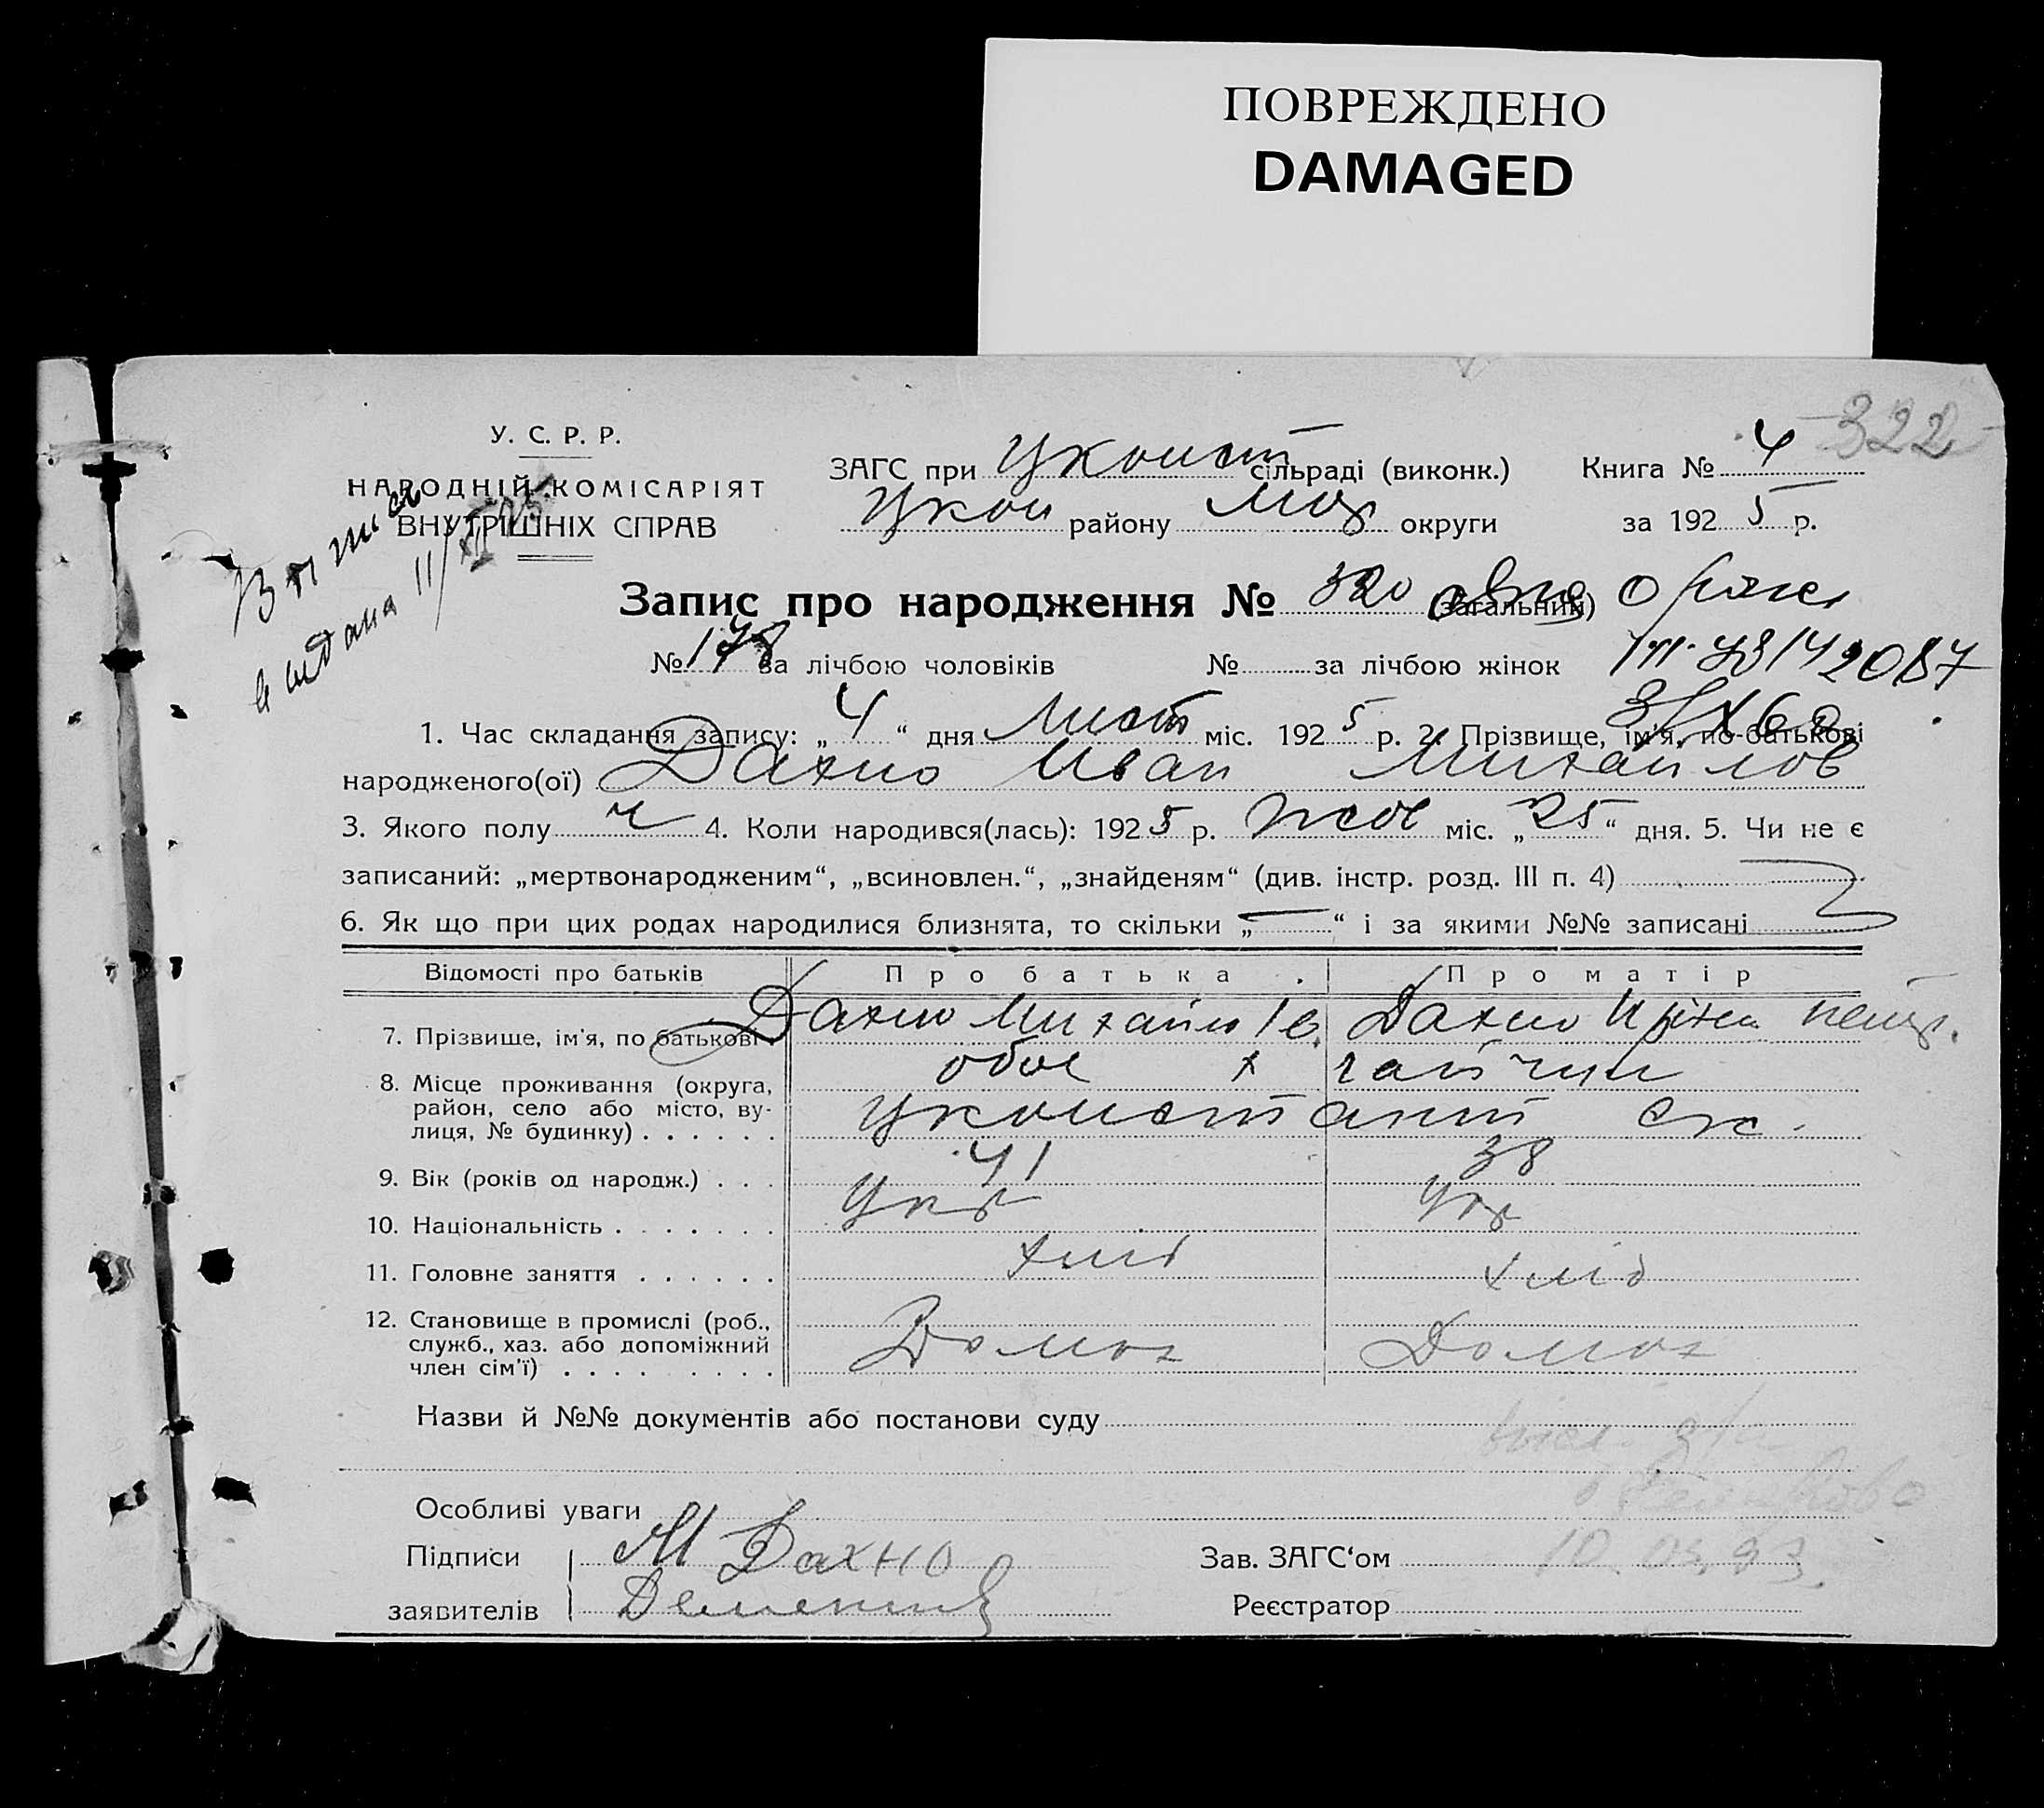 ПОВРЕЖДЕНО
DAMAGED
322
У. С. Р. Р.
НАРОДНІЙ КОМІСАРІЯТ
ВНУТРІШНІХ СПРАВ
видана 11/XII 25
ЗАГС при Уконст сільраді (виконк.) Книга № 4
Укон району округи за 1925 р.
Запис про народження № 320 (загальний)
№ 178 за лічбою чоловіків № за лічбою жінок
1. Час складання запису: „4“ дня Лист міс. 1925 р. 2. Прізвище, ім'я, по-батькові
народженого(ої) Дахно Иван Михайлов
3. Якого полу ч 4. Коли народився(лась): 1925 р. жов міс. „25“ дня. 5. Чи не є
записаний: „мертвонародженим“, „всиновлен.“, „знайденям“ (див. інстр. розд. III п. 4)
6. Як що при цих родах народилися близнята, то скільки „—“ і за якими №№ записані
Відомості про батьків Про батька Про матір
7. Прізвище, ім'я, по батькові Дахно Михайло Ів. Дахно
8. Місце проживання (округа, район, село або місто, вулиця, № будинку) обое х Гайчул
9. Вік (років од народж.) 41 38
10. Національність Укр Укр
11. Головне заняття хліб хліб
12. Становище в промислі (роб., служб., хаз. або допоміжний член сім'ї) Домох Домох
Назви й №№ документів або постанови суду
Особливі уваги
Підписи М Дахно Зав. ЗАГС‘ом
заявителів Реєстратор